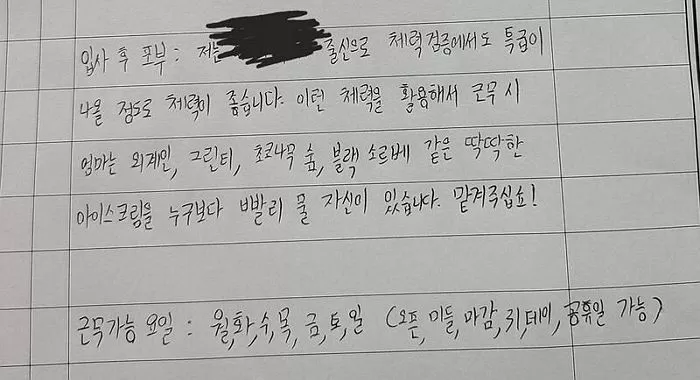 입사 후 포부 : 저는 출신으로 체력검증에서도 특급이
나올 정도로 체력이 좋습니다. 이런 체력을 활용해서 근무 시
엄마는 외계인, 그린티, 초코나무 숲, 블랙 소르베 같은 딱딱한
아이스크림을 누구보다 빨리 풀 자신이 있습니다. 맡겨주십쇼!
근무가능 요일 : 월,화,수,목, 금,토,일 (오픈, 미들, 마감, 크리스마스 제외